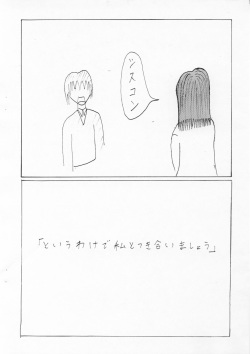 シスコン
「というわけで私とつき合いましょう」